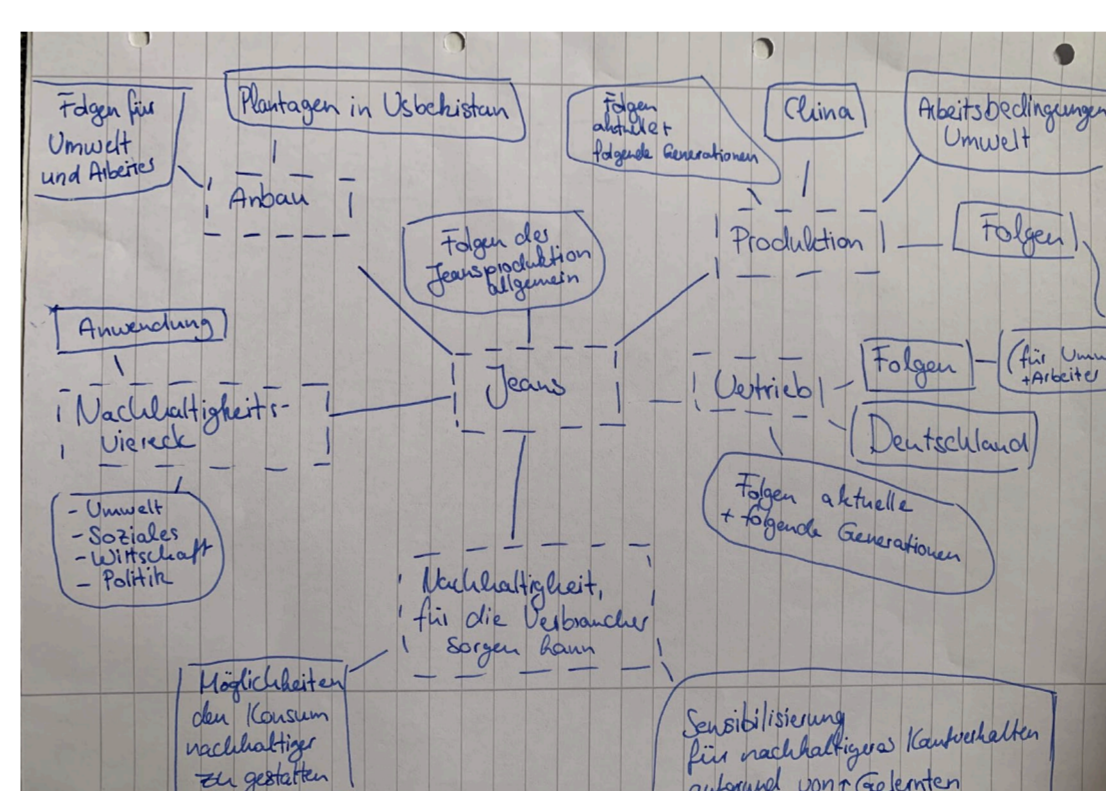 Folgen für
Umwelt
und Arbeiter
Plantagen in Usbekistan
Anbau
Folgen
aktueller
folgende Generationen
China
Arbeitsbedingungen
Umwelt
Produktion
Folgen
Folgen der
Jeansproduktion
allgemein
Jeans
Anwendung
Nachhaltigkeits-
viereck
- Umwelt
- Soziales
- Wirtschaft
- Politik
Vertrieb
Folgen
(für Umw
+Arbeiter
Deutschland
Folgen aktuelle
+ folgende Generationen
Nachhaltigkeit,
für die Verbraucher
sorgen kann
Möglichkeiten
den Konsum
nachhaltiger
zu gestalten
Sensibilisierung
für nachhaltigeres Kaufverhalten
aufgrund von Gelernten